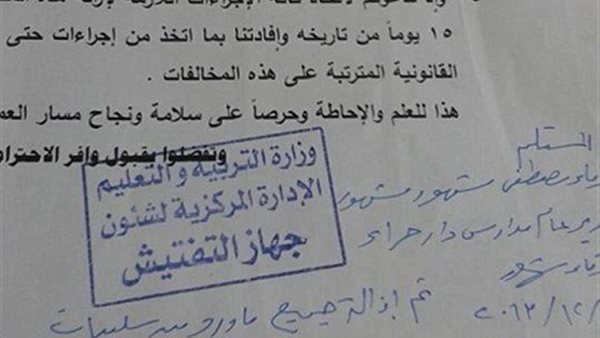 ١٥ يوماً من تاريخه وإفادتنا بما اتخذ من إجراءات حتى
القانونية المترتبة على هذه المخالفات .
هذا للعلم والإحاطة وحرصاً على سلامة ونجاح مسار العم
وتفضلوا بقبول وافر الاحترا
وزارة التربية والتعليم
الإدارة المركزية لشئون
جهاز التفتيش
المستلم
مصطفى مشهور
مدير عام مدارس دار حراء
٢٠١٣/١٢/
تم إزالة جميع ما ورد من سلبيات